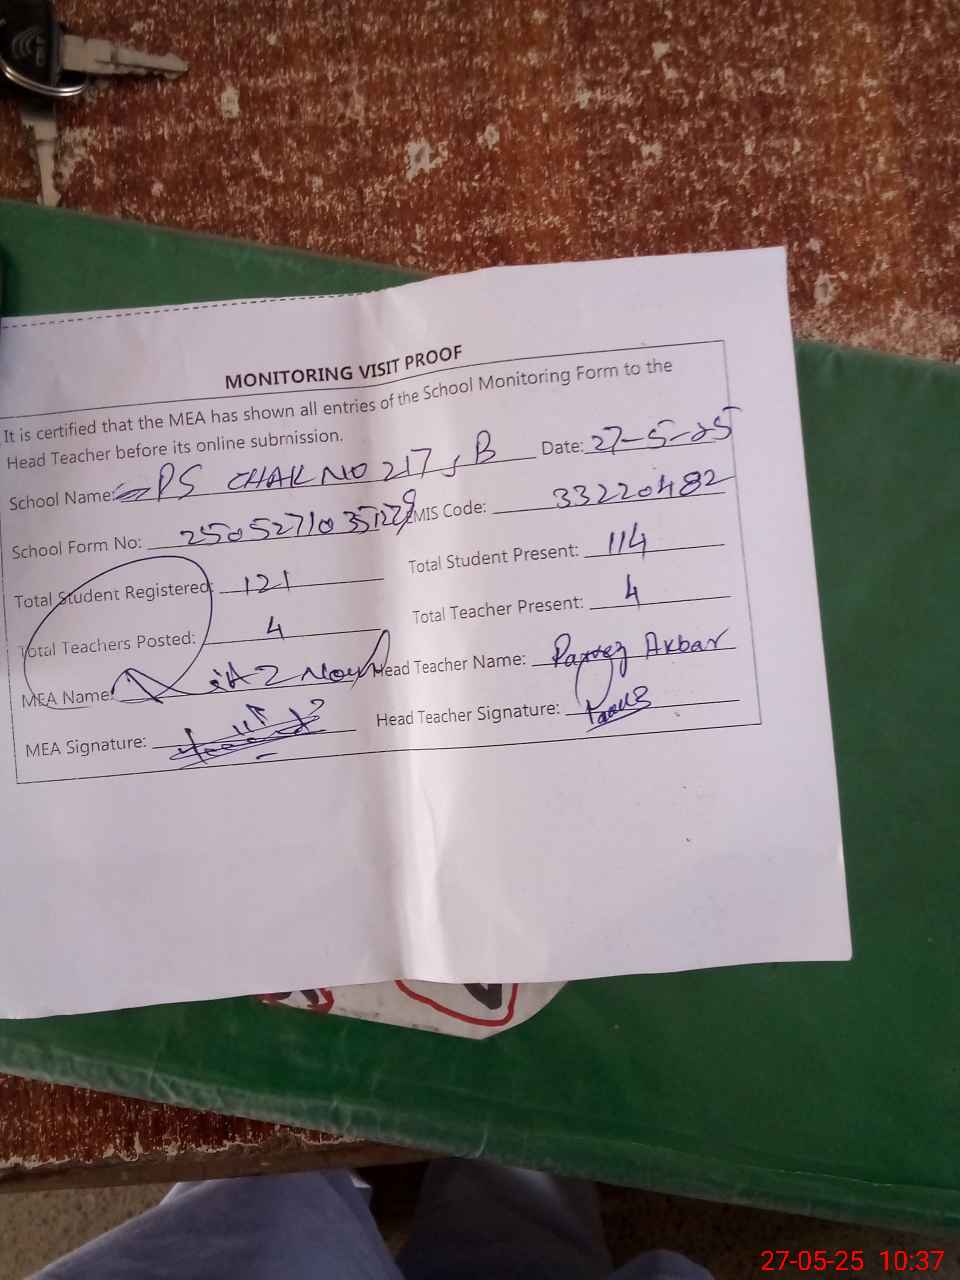 MONITORING VISIT PROOF
It is certified that the MEA has shown all entries of the School Monitoring Form to the
Head Teacher before its online submission.
School Name: PS CHAK NO 217 J B Date: 27-5-25
School Form No: EMIS Code: 33220482
Total Student Registered: 121 Total Student Present: 114
Total Teachers Posted: 4 Total Teacher Present: 4
MEA Name: Head Teacher Name: Akbar
MEA Signature: Head Teacher Signature:
27-05-25 10:37